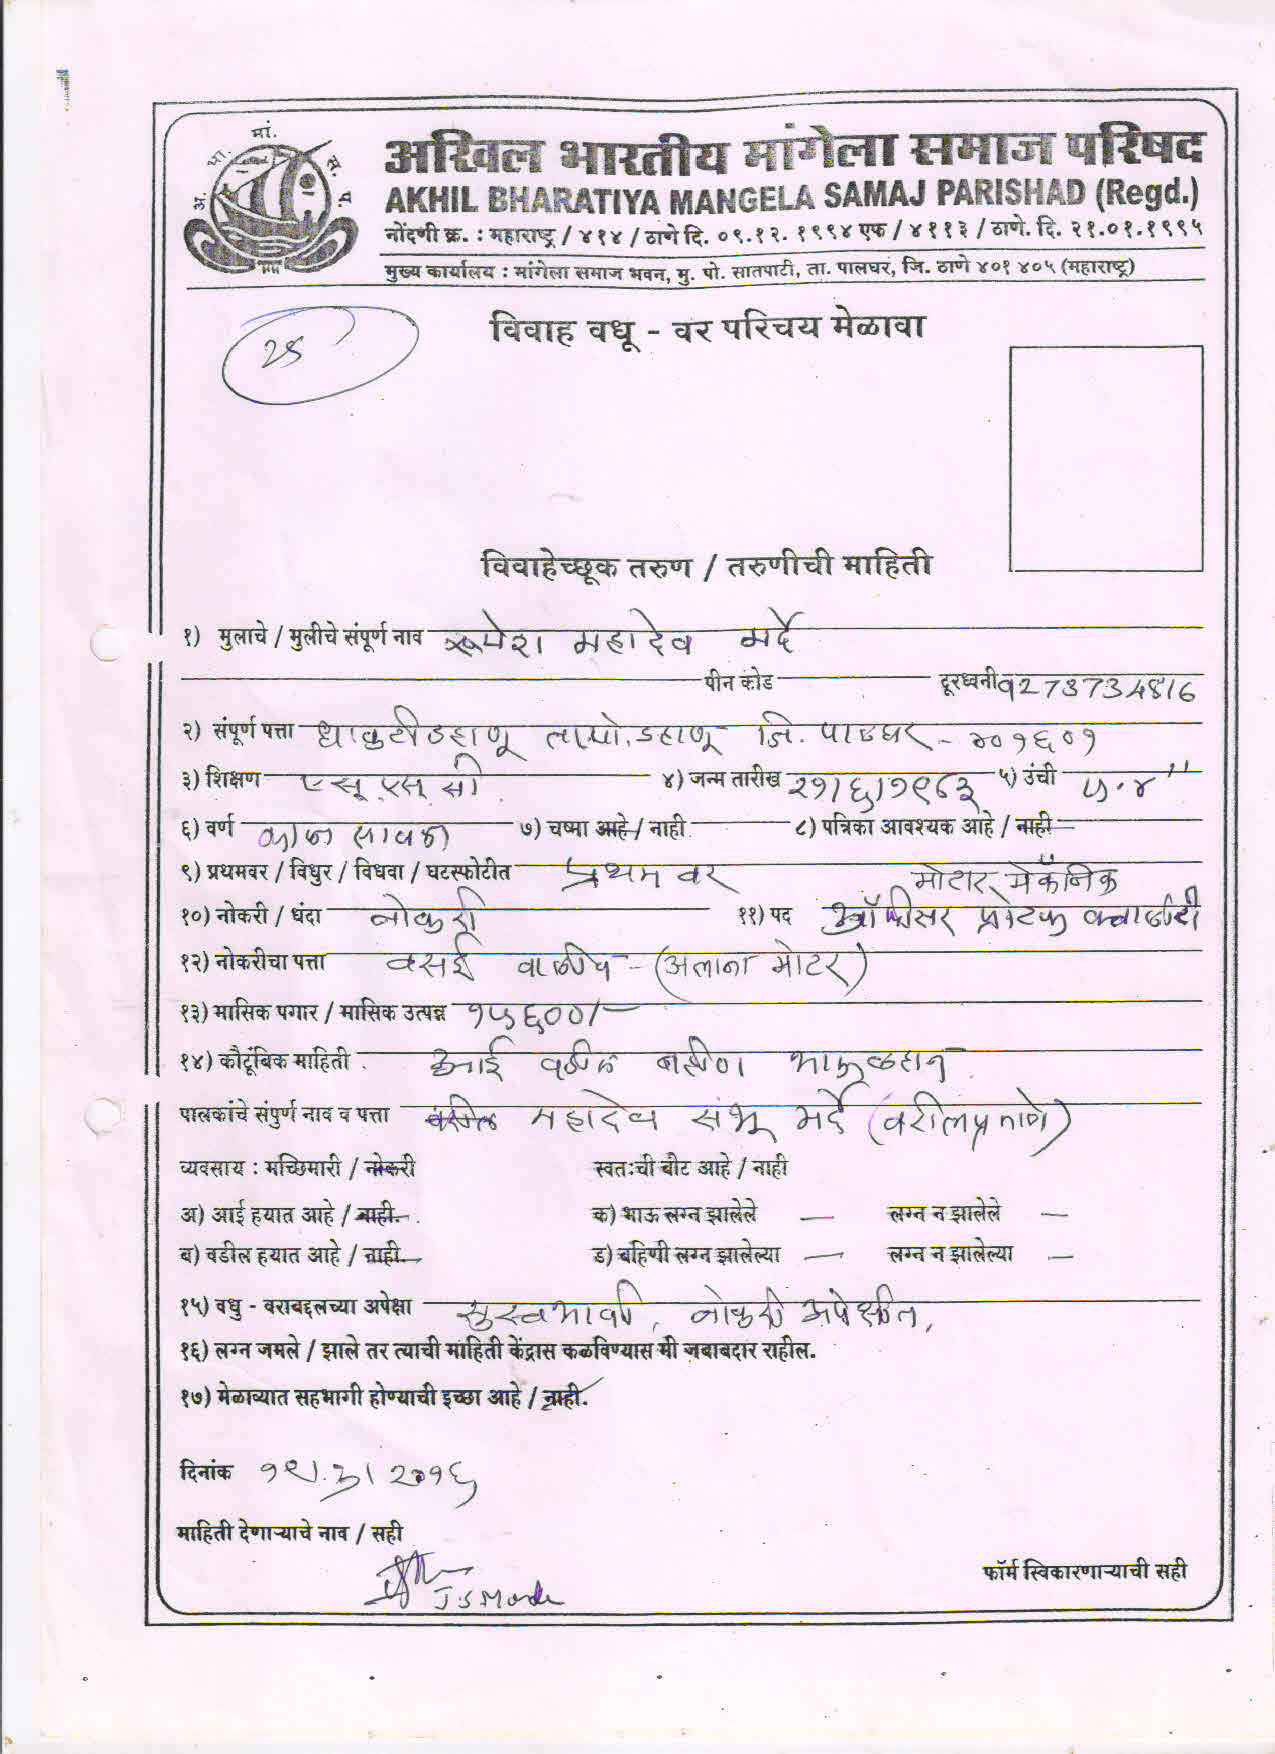 अ. भा. मां. स. प.
अखिल भारतीय मांगेला समाज परिषद
AKHIL BHARATIYA MANGELA SAMAJ PARISHAD (Regd.)
नोंदणी क्र. : महाराष्ट्र / ४१४ / ठाणे दि. ०९.१२. १९९४ एफ / ४११३ / ठाणे. दि. २१.०१.१९९५
मुख्य कार्यालय : मांगेला समाज भवन, मु. पो. सातपाटी, ता. पालघर, जि. ठाणे ४०१ ४०५ (महाराष्ट्र)
विवाह वधू - वर परिचय मेळावा
विवाहेच्छूक तरुण / तरुणीची माहिती
१) मुलाचे / मुलीचे संपूर्ण नाव महादेव मर्दे
पीन कोड दूरध्वनी 9273734816
२) संपूर्ण पत्ता धाकटी डहाणू ता.पो. डहाणू जि. पालघर - ४०१६०१
३) शिक्षण एस् एस् सी ४) जन्म तारीख २१/६/१९८३ ५) उंची ५.४"
६) वर्ण काळा सावळा ७) चष्मा आहे / नाही ८) पत्रिका आवश्यक आहे / नाही
९) प्रथमवर / विधुर / विधवा / घटस्फोटीत प्रथम वर मोटार मेकॅनिक
१०) नोकरी / धंदा नोकरी ११) पद ऑफिसर
१२) नोकरीचा पत्ता वसई वालीव - (अलाना मोटर)
१३) मासिक पगार / मासिक उत्पन्न १५६००/-
१४) कौटूंबिक माहिती आई वडील बहीण
पालकांचे संपुर्ण नाव व पत्ता महादेव शंभू मर्दे (वरीलप्रमाणे)
व्यवसाय : मच्छिमारी / नोकरी स्वतःची बोट आहे / नाही
अ) आई हयात आहे / नाही. क) भाऊ लग्न झालेले — लग्न न झालेले —
ब) वडील हयात आहे / नाही. ड) बहिणी लग्न झालेल्या — लग्न न झालेल्या —
१५) वधु - वराबद्दलच्या अपेक्षा सुस्वभावी, नोकरी अपेक्षीत,
१६) लग्न जमले / झाले तर त्याची माहिती केंद्रास कळविण्यास मी जबाबदार राहील.
१७) मेळाव्यात सहभागी होण्याची इच्छा आहे / नाही.
दिनांक
माहिती देणाऱ्याचे नाव / सही
फॉर्म स्विकारणाऱ्याची सही